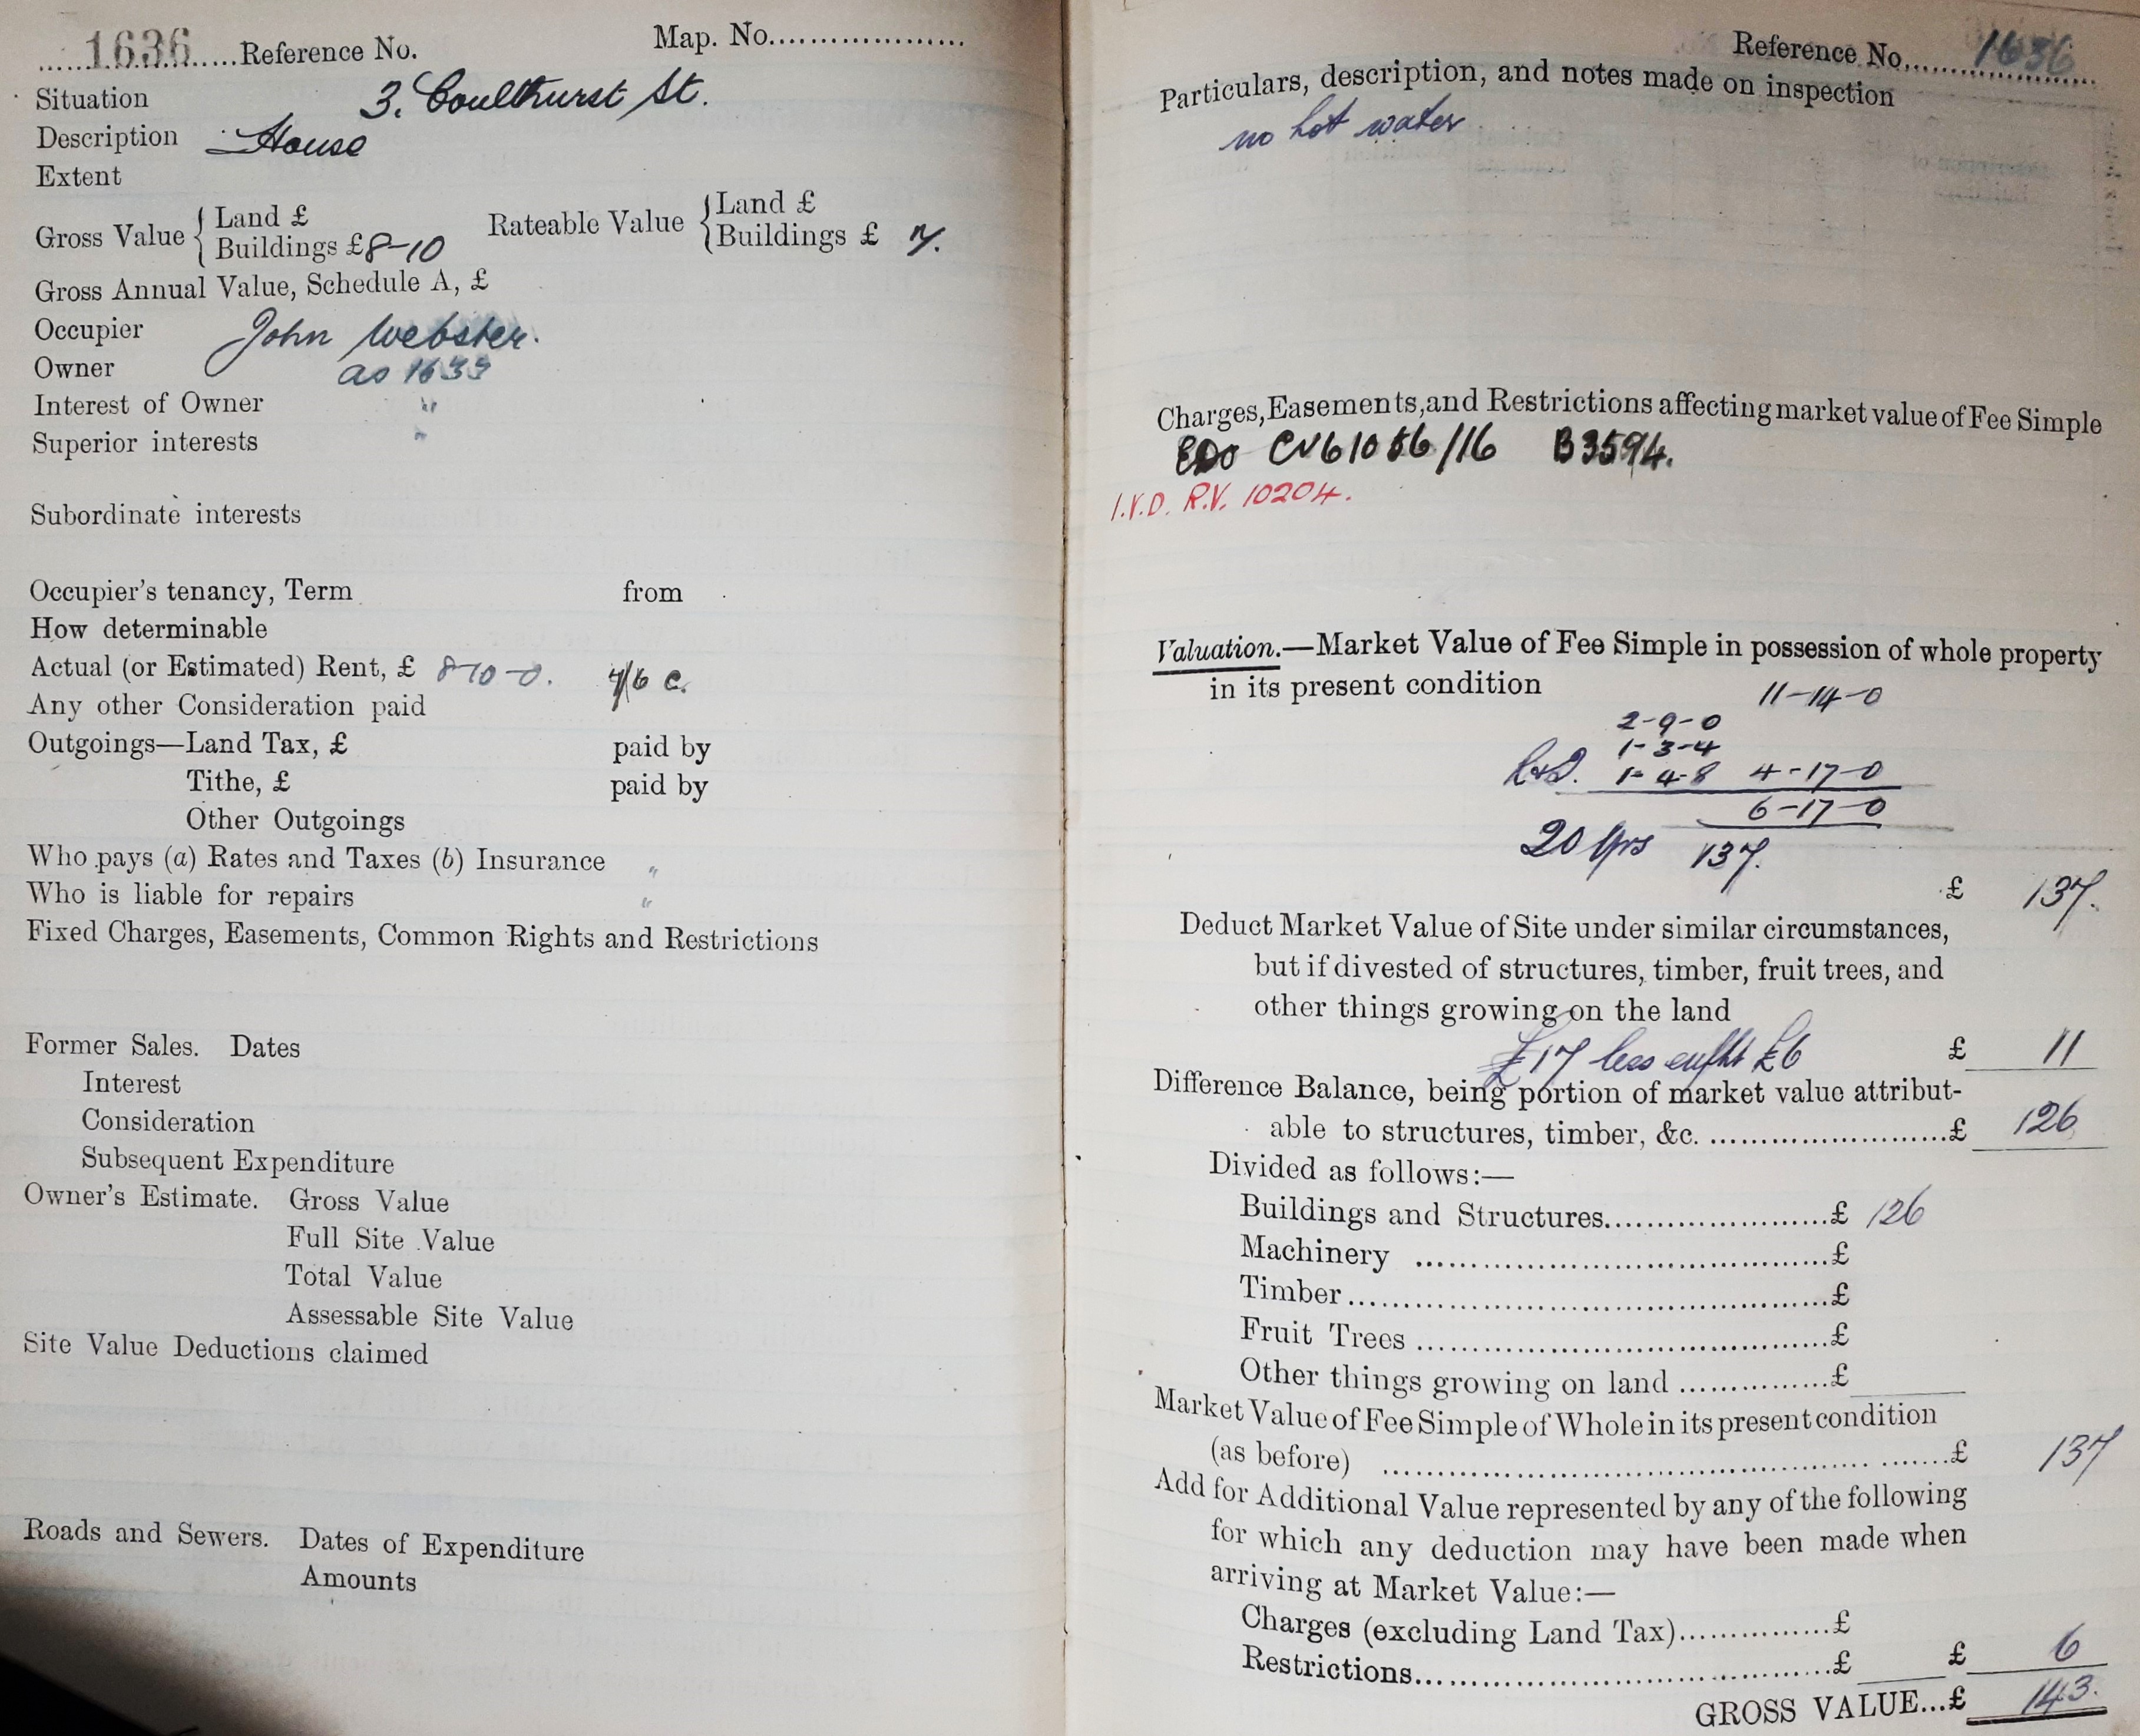 1636 Reference No. Map. No.
Situation 3. Coulthurst St.
Description House
Extent
Gross Value { Land £
Buildings £ 8-10
Rateable Value { Land £
Buildings £ 7.
Gross Annual Value, Schedule A, £
Occupier John Webster.
Owner as 1633
Interest of Owner "
Superior interests "
Subordinate interests
Occupier's tenancy, Term from
How determinable
Actual (or Estimated) Rent, £ 8-10-0. 4/6 c.
Any other Consideration paid
Outgoings—Land Tax, £ paid by
Tithe, £ paid by
Other Outgoings
Who pays (a) Rates and Taxes (b) Insurance "
Who is liable for repairs "
Fixed Charges, Easements, Common Rights and Restrictions
Former Sales. Dates
Interest
Consideration
Subsequent Expenditure
Owner's Estimate. Gross Value
Full Site Value
Total Value
Assessable Site Value
Site Value Deductions claimed
Roads and Sewers. Dates of Expenditure
Amounts
Reference No. 1636
Particulars, description, and notes made on inspection
no hot water
Charges, Easements, and Restrictions affecting market value of Fee Simple
EDO CV61056/16 B3594.
R.V. 10204.
Valuation.—Market Value of Fee Simple in possession of whole property
in its present condition
11-14-0
2-9-0
1-3-4
1-4-8 4-17-0
6-17-0
20 Yrs 137.
£ 137.
Deduct Market Value of Site under similar circumstances,
but if divested of structures, timber, fruit trees, and
other things growing on the land
£17 less £6 £ 11
Difference Balance, being portion of market value attribut-
able to structures, timber, &c. £ 126
Divided as follows:—
Buildings and Structures £ 126
Machinery £
Timber £
Fruit Trees £
Other things growing on land £
Market Value of Fee Simple of Whole in its present condition
(as before) £ 137
Add for Additional Value represented by any of the following
for which any deduction may have been made when
arriving at Market Value:—
Charges (excluding Land Tax) £
Restrictions £ £ 6
GROSS VALUE...£ 143.